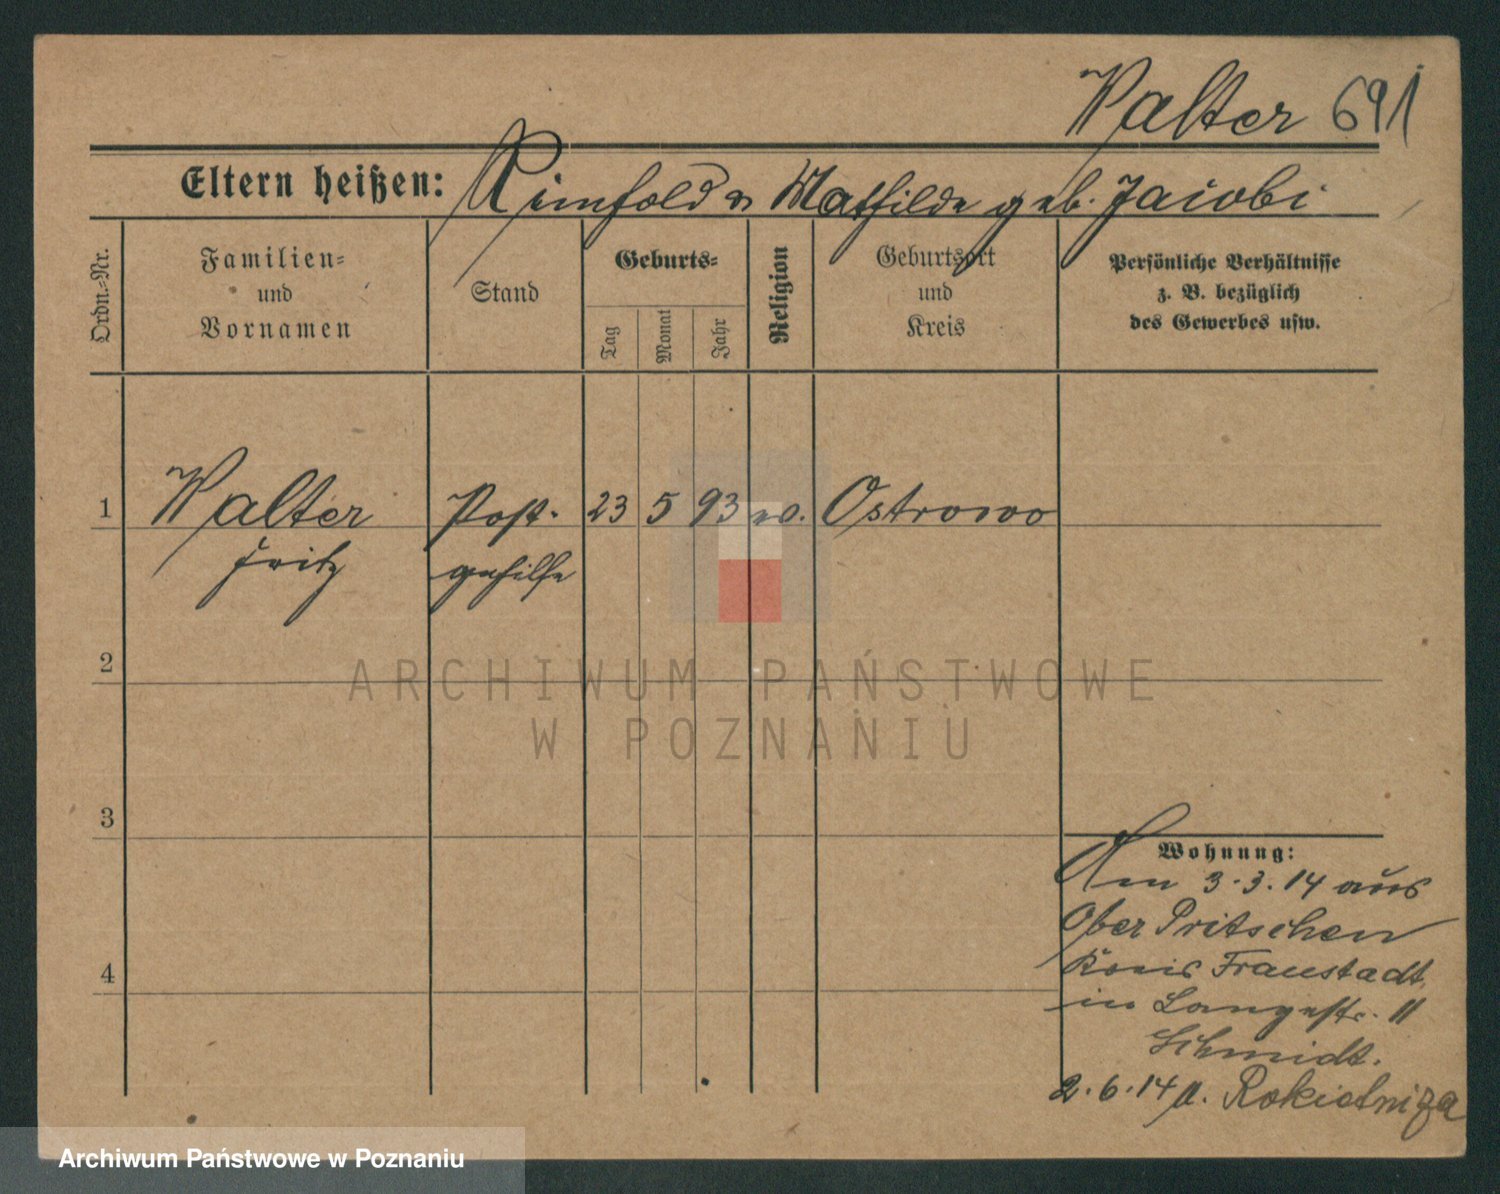 Walter 691
Eltern heißen: Reinhold u Mathilde geb. Jacobi
Ordn.-Nr.
Familien-
und
Vornamen
Stand
Geburts-
Tag
Monat
Jahr
Religion
Geburtsort
und
Kreis
Persönliche Verhältnisse
z. B. bezüglich
des Gewerbes usw.
1 Walter Post- 23 5 93 ev. Ostrowo
Fritz gehilfe
2
3
4
Wohnung:
Am 3.3.14 aus
Ober Pritschen
Kreis Fraustadt
in Langestr. 11
Schmidt.
2.6.14 n. Rokietniza
ARCHIWUM PAŃSTWOWE
W POZNANIU
Archiwum Państwowe w Poznaniu